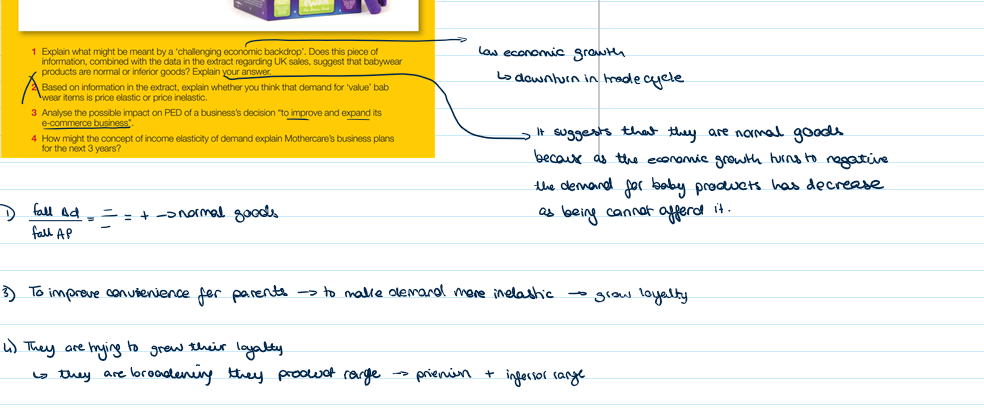 1 Explain what might be meant by a 'challenging economic backdrop'. Does this piece of
information, combined with the data in the extract regarding UK sales, suggest that babywear
products are normal or inferior goods? Explain your answer.
2 Based on information in the extract, explain whether you think that demand for 'value' bab
wear items is price elastic or price inelastic.
3 Analyse the possible impact on PED of a business's decision "to improve and expand its
e-commerce business".
4 How might the concept of income elasticity of demand explain Mothercare's business plans
for the next 3 years?
Low economic growth
↳ downturn in trade cycle
It suggests that they are normal goods
because as the economic growth turns to negative
the demand for baby products has decrease
as being cannot afford it.
1) fall Δd = - = + → normal goods
fall ΔP -
3) To improve convenience for parents → to make demand more inelastic → grow loyalty
4) They are trying to grow their loyalty
↳ they are broadening they product range → premium + inferior range